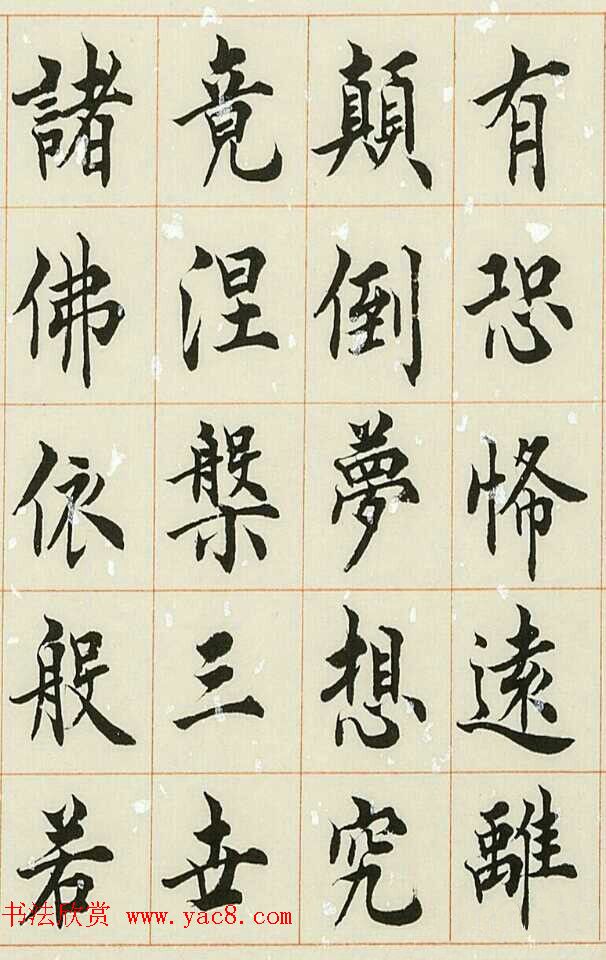 有恐悕遠離
顛倒夢想究
竟涅槃三世
諸佛依般若
书法欣赏 www.yac8.com